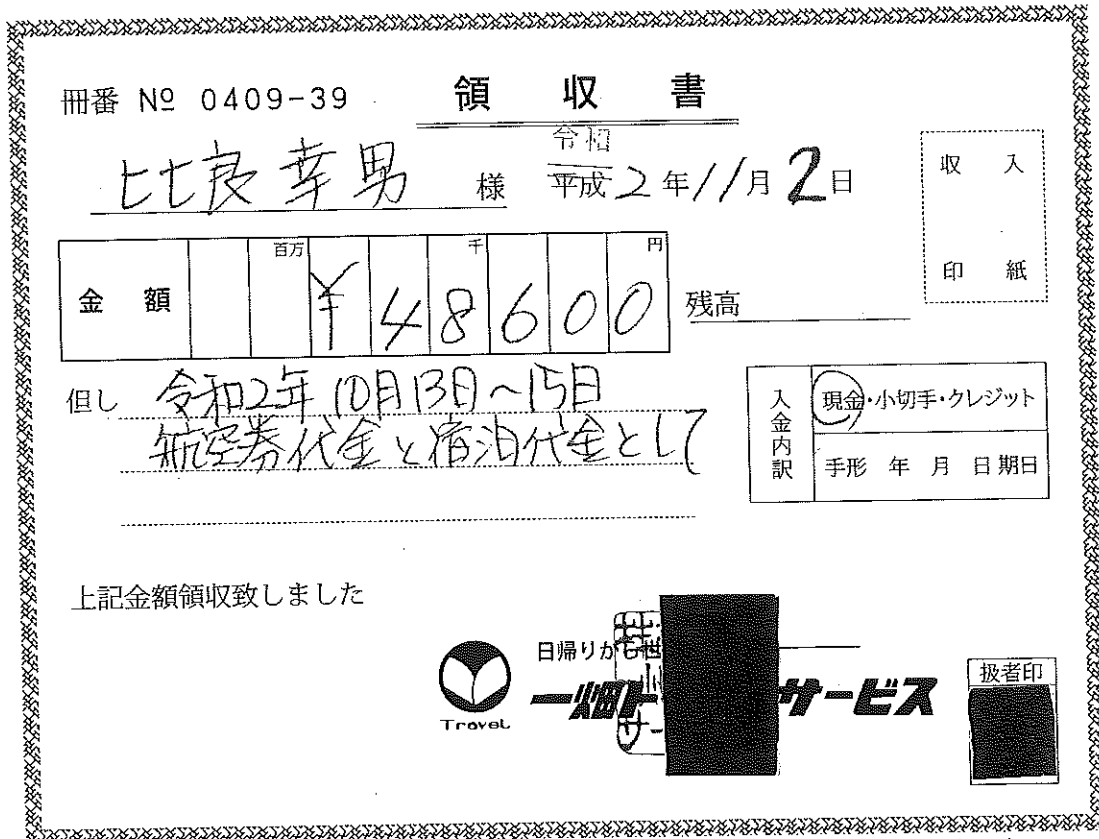 冊番 № 0409-39 領収書
比良幸男 様 令和 平成 2年11月2日
収入
印紙
金額 百万 千 円
¥48600
残高
但し 令和2年10月13日~15日
航空券代金と宿泊代金として
入金内訳 現金・小切手・クレジット
手形 年 月 日期日
上記金額領収致しました
日帰りから世
Travel
一畑ト サービス
扱者印